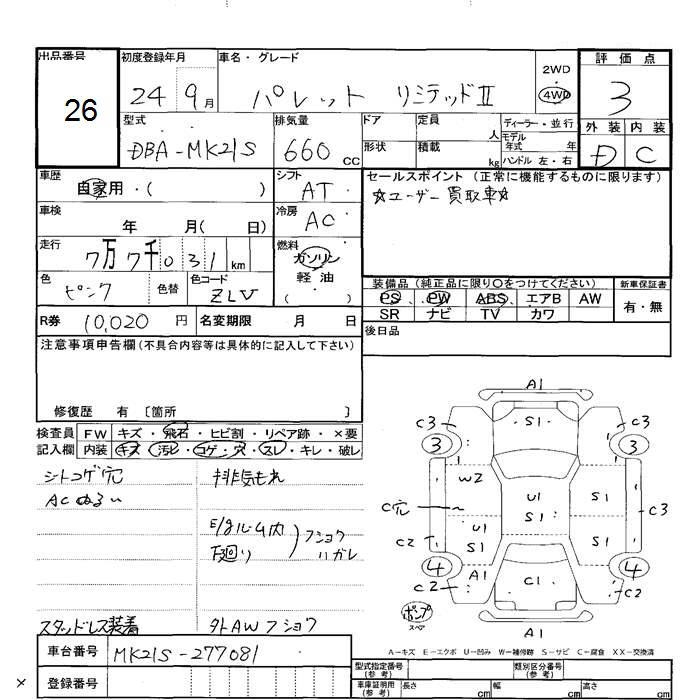 出品番号 初度登録年月 車名・グレード 2WD 評価点
26 24 9月 パレット リミテッドⅡ 4WD 3
型式 排気量 ドア 定員 人 ディーラー・並行 外装 内装
DBA-MK21S 660 CC 形状 積載 kg モデル年式 年 ハンドル 左・右 D C
車歴 自家用・( ) シフト AT セールスポイント (正常に機能するものに限ります)
☆ユーザー買取車☆
車検 年 月( 日) 冷房 AC
走行 7万7千031km 燃料 ガソリン 軽油 ( )
色 ピンク 色替 色コード ZLV
装備品 (純正品に限り○をつけてください) 新車保証書
PS PW ABS エアB AW 有・無
SR ナビ TV カワ
R券 10,020円 名変期限 月 日 後日品
注意事項申告欄(不具合内容等は具体的に記入して下さい)
修復歴 有 〔箇所 〕
検査員 FW キズ・飛石・ヒビ割・リペア跡・×要
記入欄 内装 キズ・汚レ・コゲ・穴・スレ・キレ・破レ
シトコゲ穴 排気もれ
ACぬるい
E/gルーム内
下廻り
フショク
ハガレ
スタッドレス装着 外AWフショウ
A1
C3 S1 C3
3 3
W2
U1 S1
C穴 S1 C3
U1
C2 S1 S1
4 A1 C1 4
C2 C2
ポンプ
スペア
A1
A-キズ E-エクボ U-凹み W-補修跡 S-サビ C-腐食 XX-交換済
車台番号 MK21S-277081
登録番号
型式指定番号(参考) 類別区分番号(参考)
車庫証明用(参考) 長さ cm 幅 cm 高さ cm
×